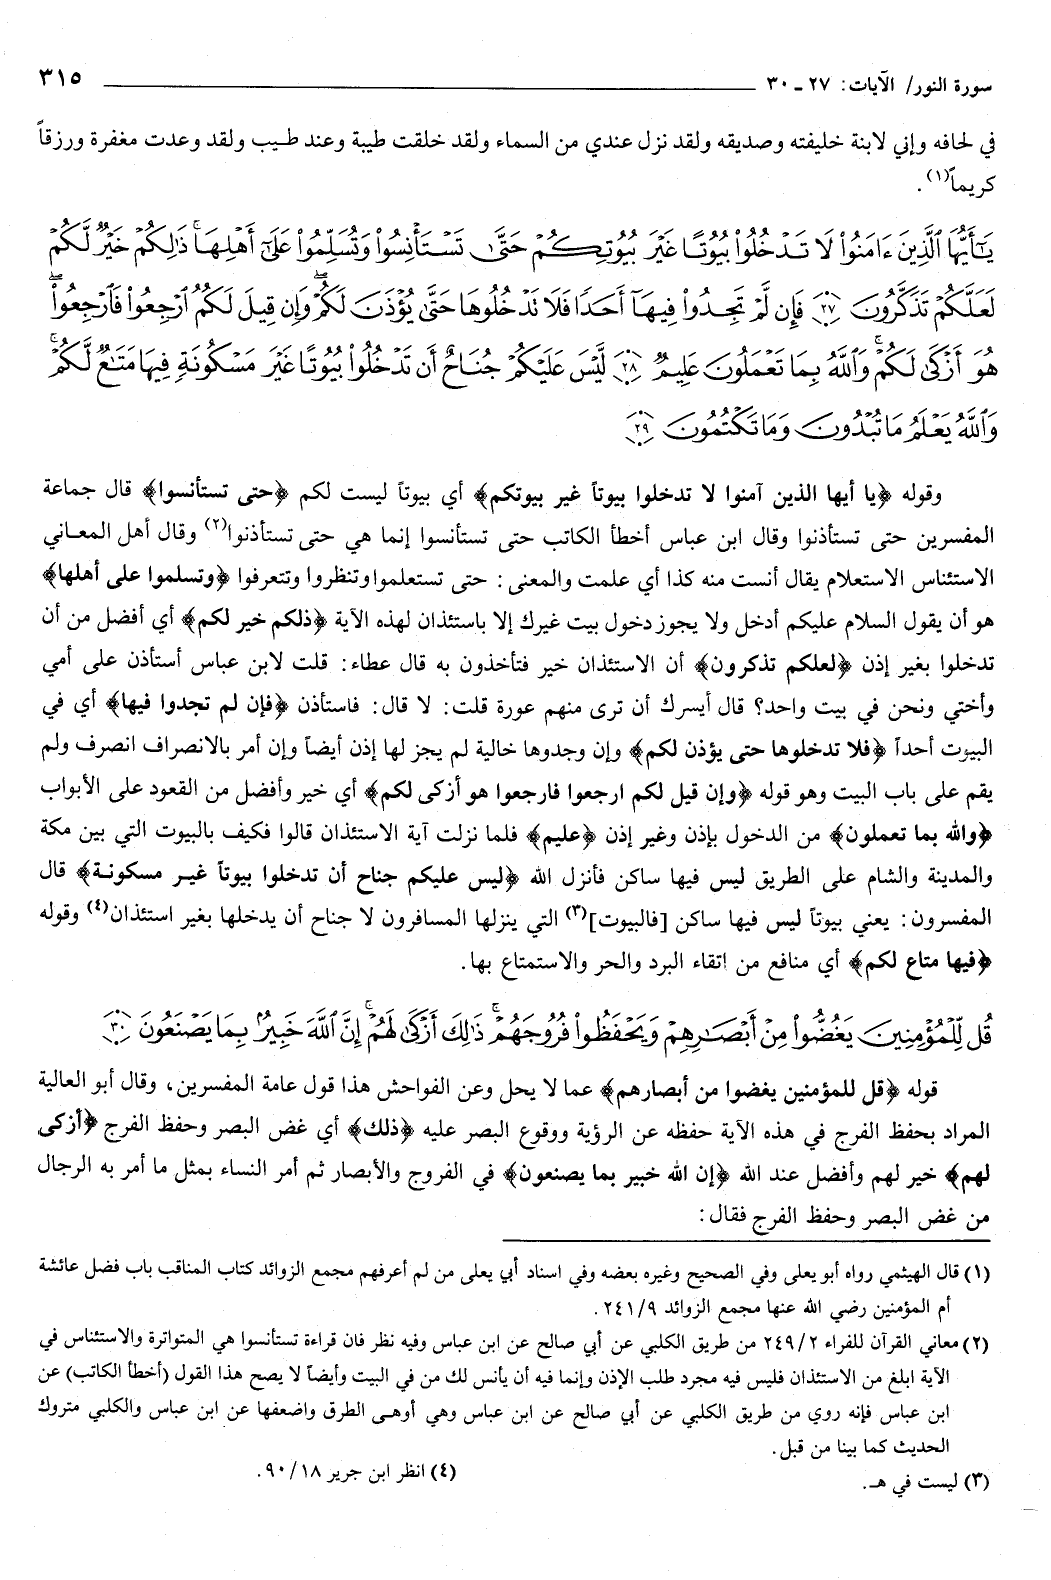 سورة النور/ الآيات: ٢٧ ـ ٣٠ ٣١٥
في لحافه وإني لابنة خليفته وصديقه ولقد نزل عندي من السماء ولقد خلقت طيبة وعند طيب ولقد وعدت مغفرة ورزقاً
كريماً(١).
يَٰٓأَيُّهَا ٱلَّذِينَ ءَامَنُواْ لَا تَدْخُلُواْ بُيُوتًا غَيْرَ بُيُوتِكُمْ حَتَّىٰ تَسْتَأْنِسُواْ وَتُسَلِّمُواْ عَلَىٰٓ أَهْلِهَا ۚ ذَٰلِكُمْ خَيْرٌ لَّكُمْ
لَعَلَّكُمْ تَذَكَّرُونَ ٢٧ فَإِن لَّمْ تَجِدُواْ فِيهَآ أَحَدًا فَلَا تَدْخُلُوهَا حَتَّىٰ يُؤْذَنَ لَكُمْ ۖ وَإِن قِيلَ لَكُمُ ٱرْجِعُواْ فَٱرْجِعُواْ ۖ
هُوَ أَزْكَىٰ لَكُمْ ۚ وَٱللَّهُ بِمَا تَعْمَلُونَ عَلِيمٌ ٢٨ لَّيْسَ عَلَيْكُمْ جُنَاحٌ أَن تَدْخُلُواْ بُيُوتًا غَيْرَ مَسْكُونَةٍ فِيهَا مَتَٰعٌ لَّكُمْ ۚ
وَٱللَّهُ يَعْلَمُ مَا تُبْدُونَ وَمَا تَكْتُمُونَ ٢٩
وقوله ﴿يا أيها الذين آمنوا لا تدخلوا بيوتاً غير بيوتكم﴾ أي بيوتاً ليست لكم ﴿حتى تستأنسوا﴾ قال جماعة
المفسرين حتى تستأذنوا وقال ابن عباس أخطأ الكاتب حتى تستأنسوا إنما هي حتى تستأذنوا(٢) وقال أهل المعاني
الاستئناس الاستعلام يقال أنست منه كذا أي علمت والمعنى: حتى تستعلموا وتنظروا وتتعرفوا ﴿وتسلموا على أهلها﴾
هو أن يقول السلام عليكم أدخل ولا يجوز دخول بيت غيرك إلا باستئذان لهذه الآية ﴿ذلكم خير لكم﴾ أي أفضل من أن
تدخلوا بغير إذن ﴿لعلكم تذكرون﴾ أن الاستئذان خير فتأخذون به قال عطاء: قلت لابن عباس أستأذن على أمي
وأختي ونحن في بيت واحد؟ قال أيسرك أن ترى منهم عورة قلت: لا قال: فاستأذن ﴿فإن لم تجدوا فيها﴾ أي في
البيوت أحداً ﴿فلا تدخلوها حتى يؤذن لكم﴾ وإن وجدوها خالية لم يجز لها إذن أيضاً وإن أمر بالانصراف انصرف ولم
يقم على باب البيت وهو قوله ﴿وإن قيل لكم ارجعوا فارجعوا هو أزكى لكم﴾ أي خير وأفضل من القعود على الأبواب
﴿والله بما تعملون﴾ من الدخول بإذن وغير إذن ﴿عليم﴾ فلما نزلت آية الاستئذان قالوا فكيف بالبيوت التي بين مكة
والمدينة والشام على الطريق ليس فيها ساكن فأنزل الله ﴿ليس عليكم جناح أن تدخلوا بيوتاً غير مسكونة﴾ قال
المفسرون: يعني بيوتاً ليس فيها ساكن [فالبيوت](٣) التي ينزلها المسافرون لا جناح أن يدخلها بغير استئذان(٤) وقوله
﴿فيها متاع لكم﴾ أي منافع من اتقاء البرد والحر والاستمتاع بها.
قُل لِّلْمُؤْمِنِينَ يَغُضُّواْ مِنْ أَبْصَٰرِهِمْ وَيَحْفَظُواْ فُرُوجَهُمْ ۚ ذَٰلِكَ أَزْكَىٰ لَهُمْ ۗ إِنَّ ٱللَّهَ خَبِيرٌۢ بِمَا يَصْنَعُونَ ٣٠
قوله ﴿قل للمؤمنين يغضوا من أبصارهم﴾ عما لا يحل وعن الفواحش هذا قول عامة المفسرين، وقال أبو العالية
المراد بحفظ الفرج في هذه الآية حفظه عن الرؤية ووقوع البصر عليه ﴿ذلك﴾ أي غض البصر وحفظ الفرج ﴿أزكى
لهم﴾ خير لهم وأفضل عند الله ﴿إن الله خبير بما يصنعون﴾ في الفروج والأبصار ثم أمر النساء بمثل ما أمر به الرجال
من غض البصر وحفظ الفرج فقال:
(١) قال الهيثمي رواه أبو يعلى وفي الصحيح وغيره بعضه وفي اسناد أبي يعلى من لم أعرفهم مجمع الزوائد كتاب المناقب باب فضل عائشة
أم المؤمنين رضي الله عنها مجمع الزوائد ٢٤١/٩.
(٢) معاني القرآن للفراء ٢٤٩/٢ من طريق الكلبي عن أبي صالح عن ابن عباس وفيه نظر فان قراءة تستأنسوا هي المتواترة والاستئناس في
الآية ابلغ من الاستئذان فليس فيه مجرد طلب الإذن وإنما فيه أن يأنس لك من في البيت وأيضاً لا يصح هذا القول (أخطأ الكاتب) عن
ابن عباس فإنه روي من طريق الكلبي عن أبي صالح عن ابن عباس وهي أوهى الطرق واضعفها عن ابن عباس والكلبي متروك
الحديث كما بينا من قبل.
(٣) ليست في هـ. (٤) انظر ابن جرير ٩٠/١٨.